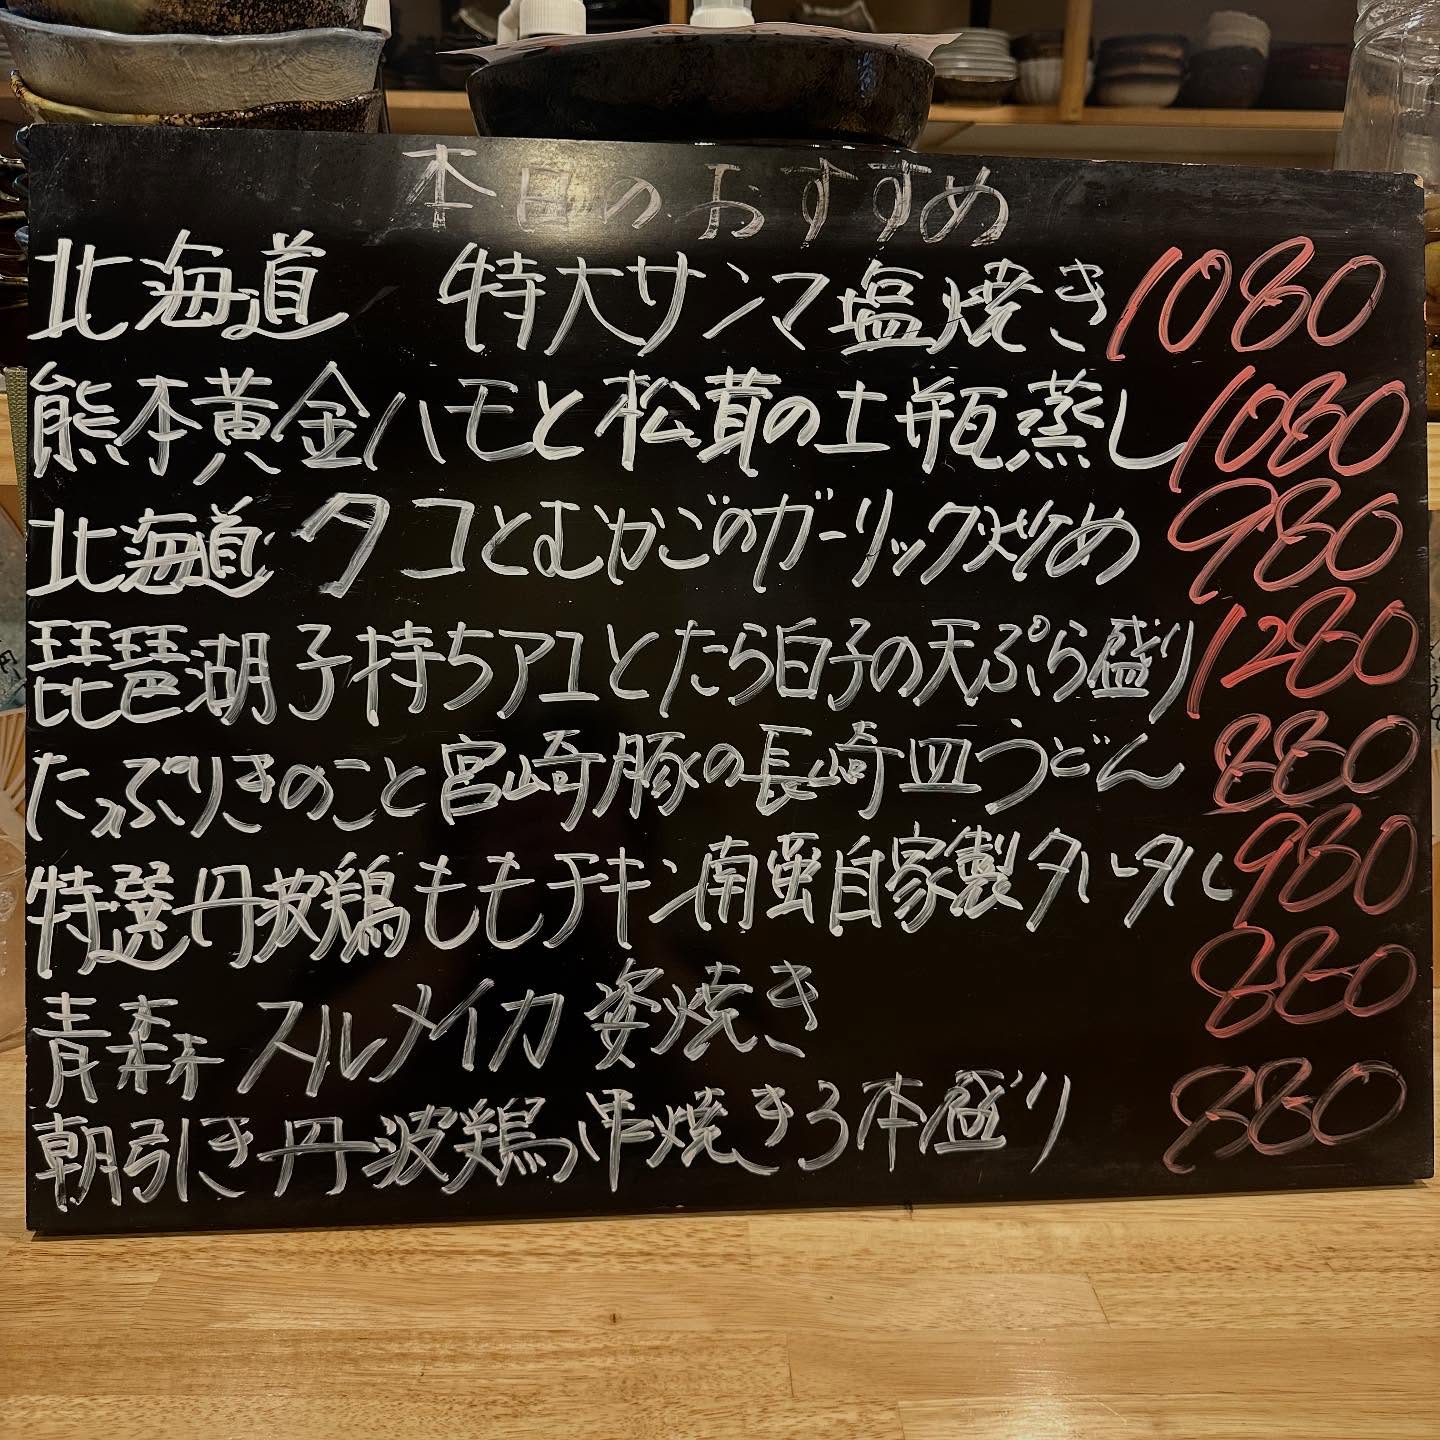 本日のおすすめ
北海道 特大サンマ塩焼き 1080
熊本黄金ハモと松茸の土瓶蒸し 1080
北海道 タコとむかごのガーリック炒め 980
琵琶湖子持ちアユとたら白子の天ぷら盛り 1280
たっぷりきのこと宮崎豚の長崎皿うどん 880
特選丹波鶏ももチキン南蛮自家製タルタル 980
青森 スルメイカ 姿焼き 880
朝引き丹波鶏串焼き3本盛り 880